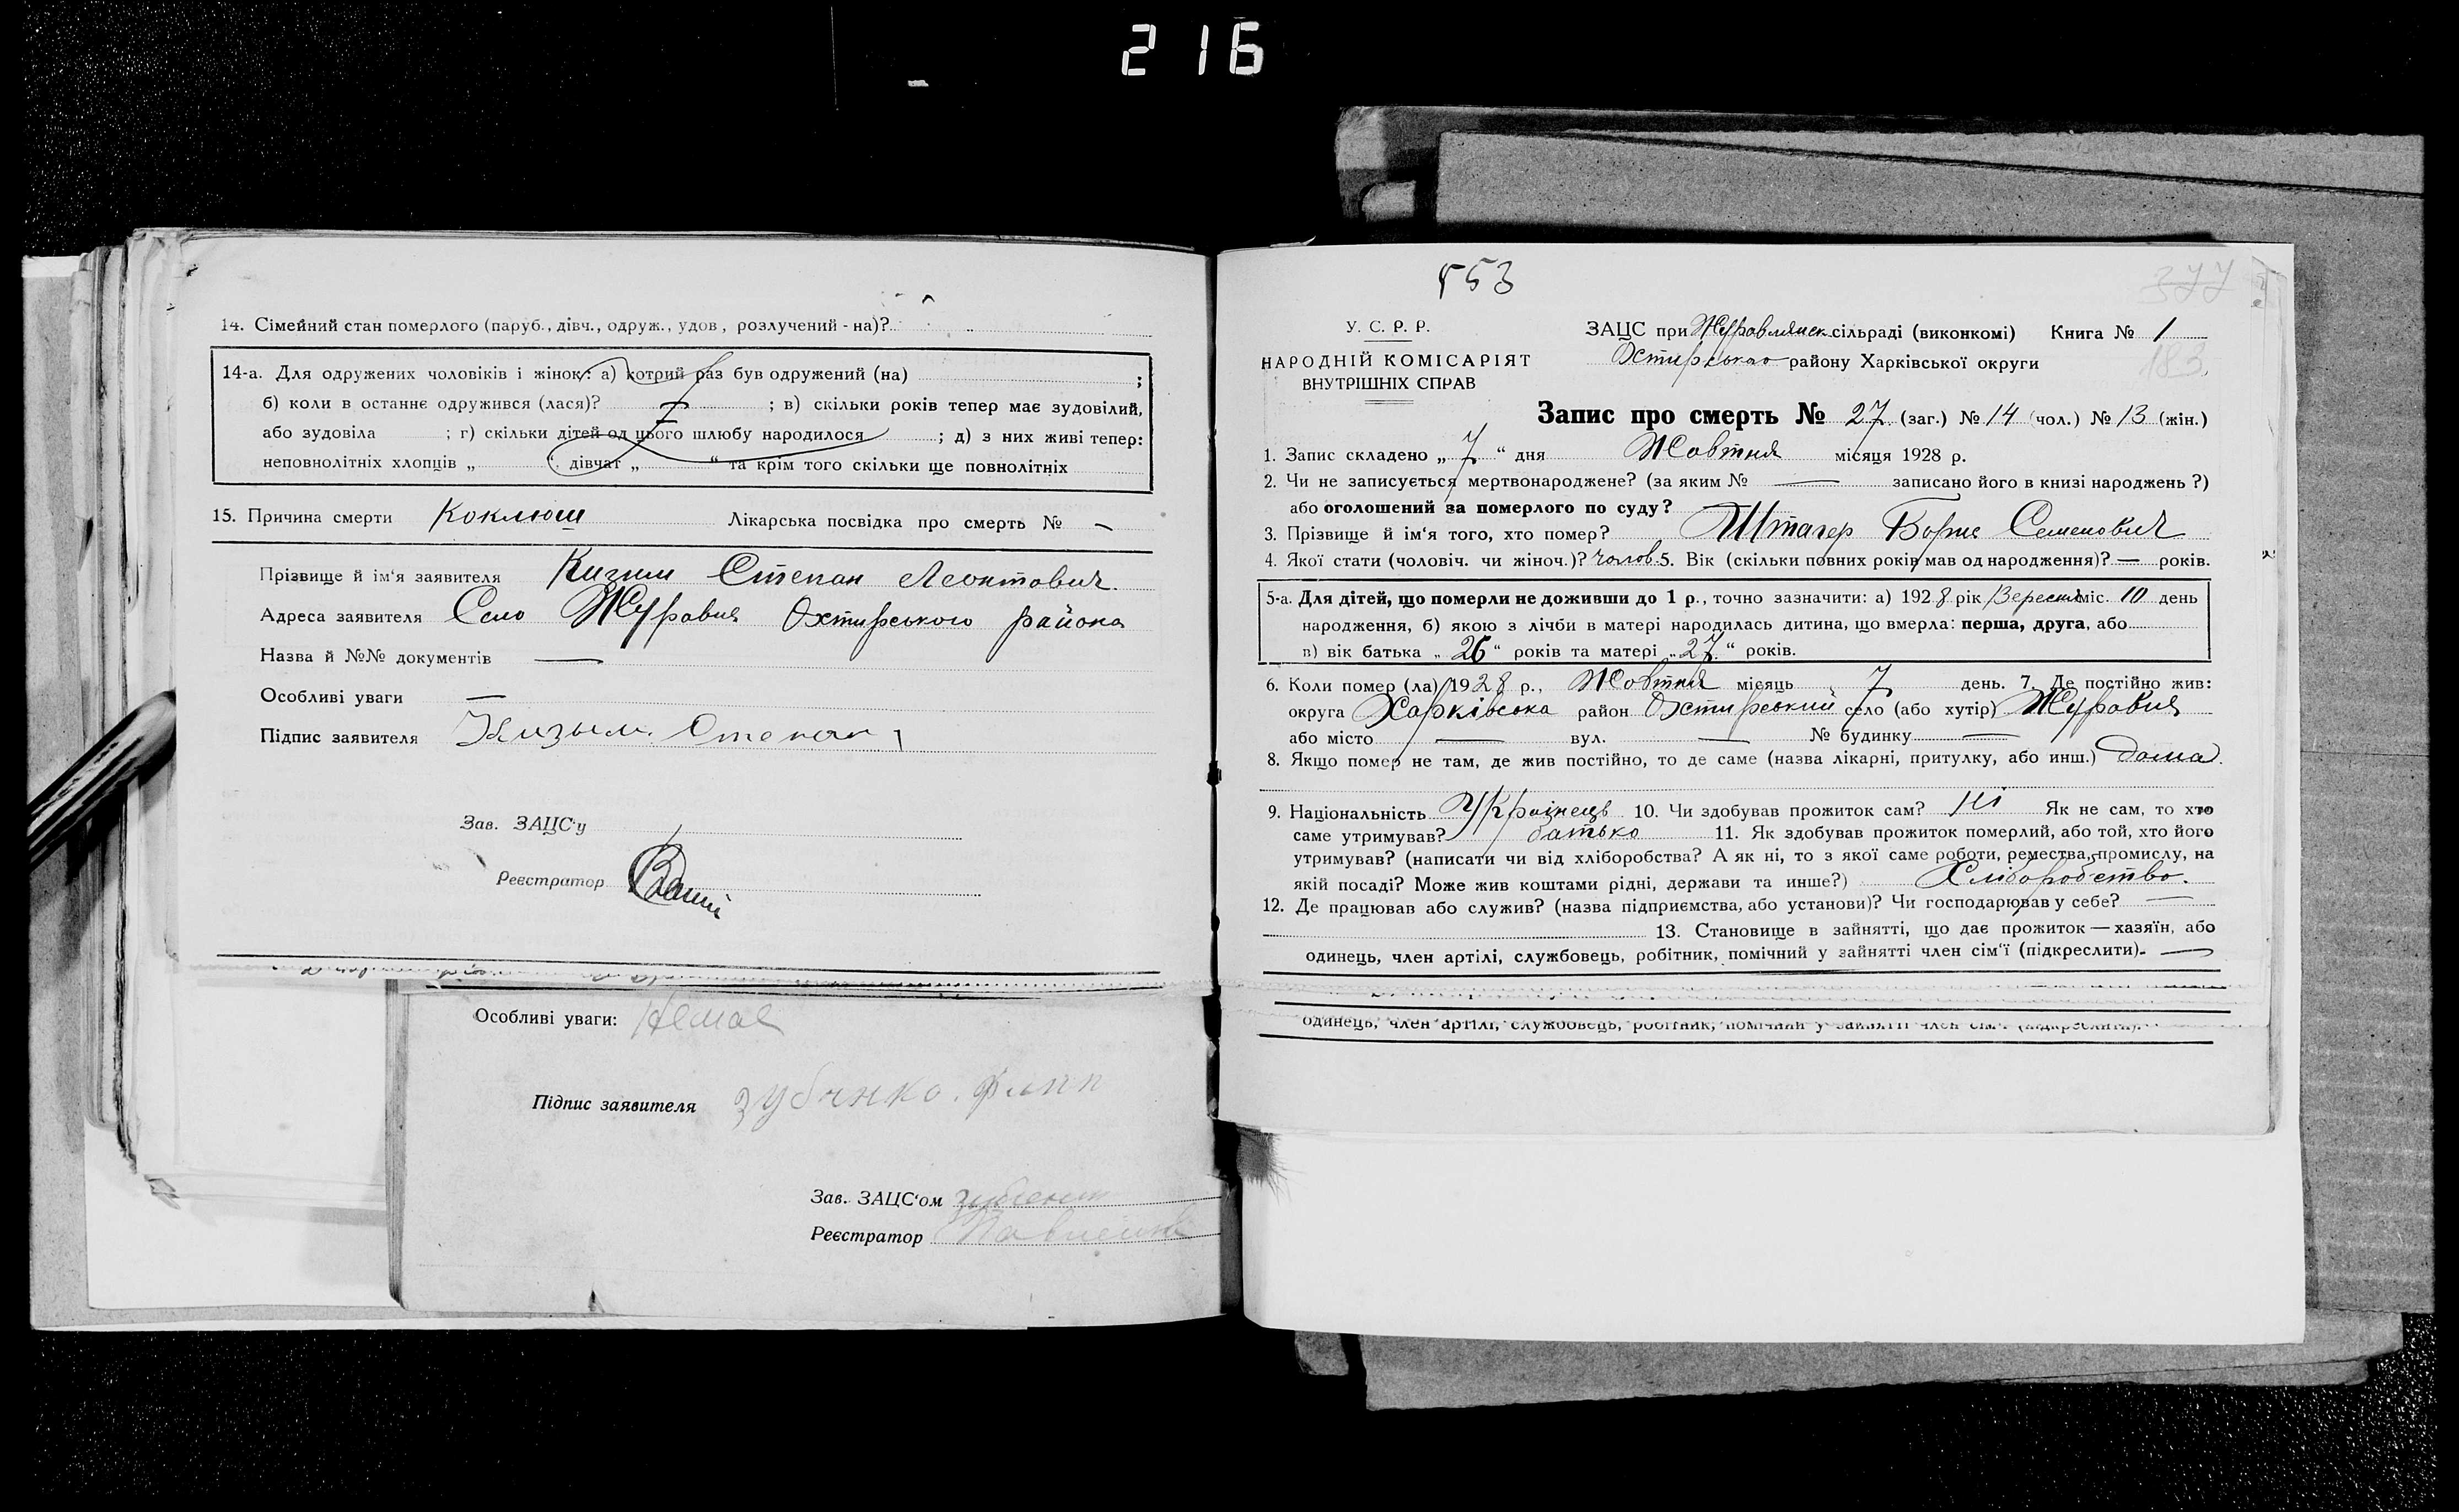 216
14. Сімейний стан померлого (паруб., дівч., одруж., удов, розлучений - на)?
14-а. Для одружених чоловіків і жінок: а) котрий раз був одружений (на) ;
б) коли в останнє одружився (лася)? ; в) скільки років тепер має зудовілий,
або зудовіла ; г) скільки дітей од цього шлюбу народилося ; д) з них живі тепер:
неповнолітніх хлопців „ “ дівчат „ “ та крім того скільки ще повнолітніх
15. Причина смерти Коклюш Лікарська посвідка про смерть № —
Прізвище й ім‘я заявителя Кизим Степан Леонтович.
Адреса заявителя Село Журавня Охтирського района
Назва й №№ документів —
Особливі уваги —
Підпис заявителя Кизым. Степан
Зав. ЗАЦС‘у
Реєстратор
Особливі уваги: Немає
Підпис заявителя
Зав. ЗАЦС‘ом
Реєстратор
553
377
У. С. Р. Р.
НАРОДНІЙ КОМІСАРІЯТ
ВНУТРІШНІХ СПРАВ
ЗАЦС при Журавлянск. сільраді (виконкомі) Книга № 1
Охтирського району Харківської округи
183
Запис про смерть № 27 (заг.) № 14 (чол.) № 13 (жін.)
1. Запис складено „ 7 “ дня Жовтня місяця 1928 р.
2. Чи не записується мертвонароджене? (за яким № — записано його в книзі народжень ?)
або оголошений за померлого по суду?
3. Прізвище й ім‘я того, хто помер? Штагер Борис Семенович
4. Якої стати (чоловіч. чи жіноч.)? чолов. 5. Вік (скільки повних років мав од народження)? — років.
5-а. Для дітей, що померли не доживши до 1 р., точно зазначити: а) 1928 рік Вересня міс. 10 день
народження, б) якою з лічби в матері народилась дитина, що вмерла: перша, друга, або
в) вік батька „ 26 “ років та матері „ 27 “ років.
6. Коли помер (ла) 1928 р., Жовтня місяць 7 день. 7. Де постійно жив:
округа Харківська район Охтирський село (або хутір) Журавня
або місто — вул. — № будинку —
8. Якщо помер не там, де жив постійно, то де саме (назва лікарні, притулку, або инш.) дома.
9. Національність Українець 10. Чи здобував прожиток сам? ні Як не сам, то хто
саме утримував? батько 11. Як здобував прожиток померлий, або той, хто його
утримував? (написати чи від хліборобства? А як ні, то з якої саме роботи, ремества, промислу, на
якій посаді? Може жив коштами рідні, держави та инше?) Хліборобство.
12. Де працював або служив? (назва підприємства, або установи)? Чи господарював у себе? —
13. Становище в зайнятті, що дає прожиток — хазяїн, або
одинець, член артілі, службовець, робітник, помічний у зайнятті член сім‘ї (підкреслити). —
одинець, член артілі, службовець, робітник, помічний у зайнятті член сім‘ї (підкреслити).